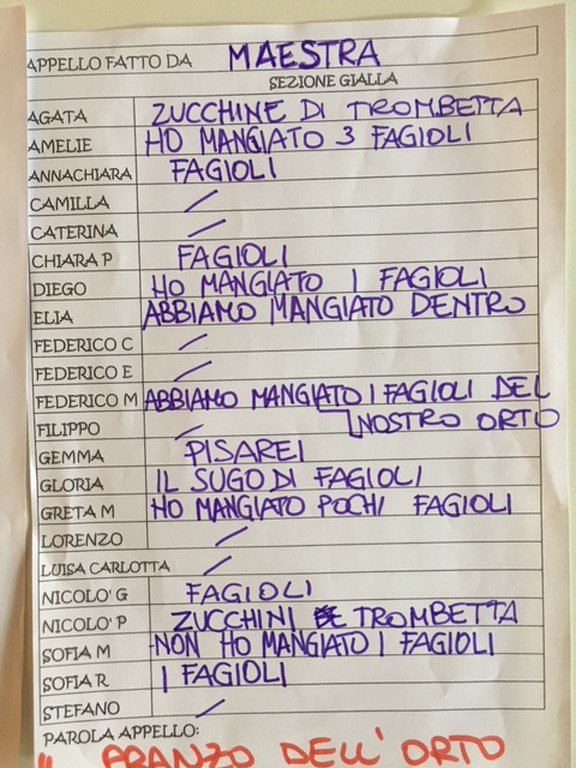 APPELLO FATTO DA MAESTRA
SEZIONE GIALLA
AGATA ZUCCHINE DI TROMBETTA
AMELIE HO MANGIATO 3 FAGIOLI
ANNACHIARA FAGIOLI
CAMILLA /
CATERINA /
CHIARA P FAGIOLI
DIEGO HO MANGIATO I FAGIOLI
ELIA ABBIAMO MANGIATO DENTRO
FEDERICO C /
FEDERICO E /
FEDERICO M ABBIAMO MANGIATO I FAGIOLI DEL
FILIPPO / NOSTRO ORTO
GEMMA PISAREI
GLORIA IL SUGO DI FAGIOLI
GRETA M HO MANGIATO POCHI FAGIOLI
LORENZO /
LUISA CARLOTTA /
NICOLO' G FAGIOLI
NICOLO' P ZUCCHINI TROMBETTA
SOFIA M NON HO MANGIATO I FAGIOLI
SOFIA R I FAGIOLI
STEFANO /
PAROLA APPELLO:
PRANZO DELL'ORTO